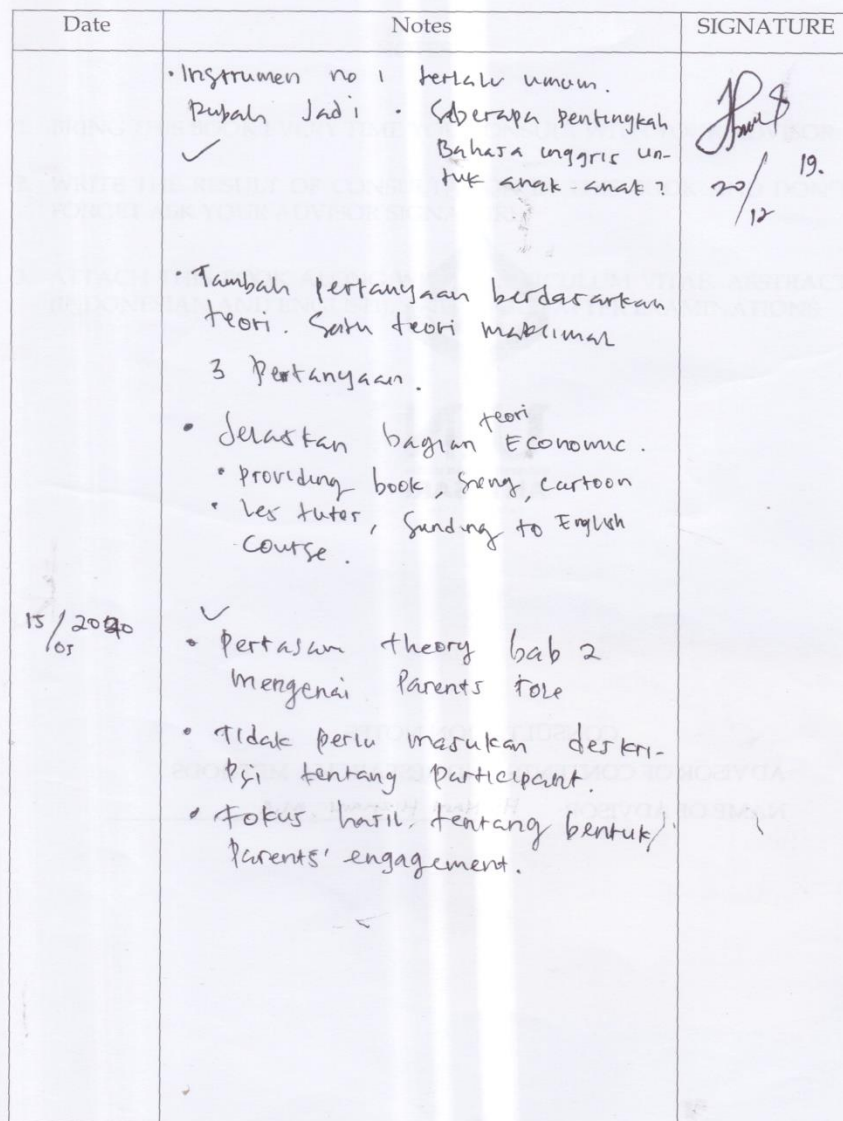 Date Notes SIGNATURE
• Instrumen no 1 terlalu umum.
Rubah Jadi • Seberapa pentingkah
✓ Bahasa inggris un-
tuk anak anak?
20/12 19.
• Tambah pertanyaan berdasarkan
teori. Satu teori maksimal
3 Pertanyaan.
• Jelaskan bagian teori Economic.
• Providing book, Song, cartoon
• Les tutor, Sending to English
course.
15/05 2020
✓
• Pertajam theory bab 2
mengenai Parents role
• Tidak perlu masukan deskri-
psi tentang participant.
• Fokus hasil tentang bentuk
Parents' engagement.